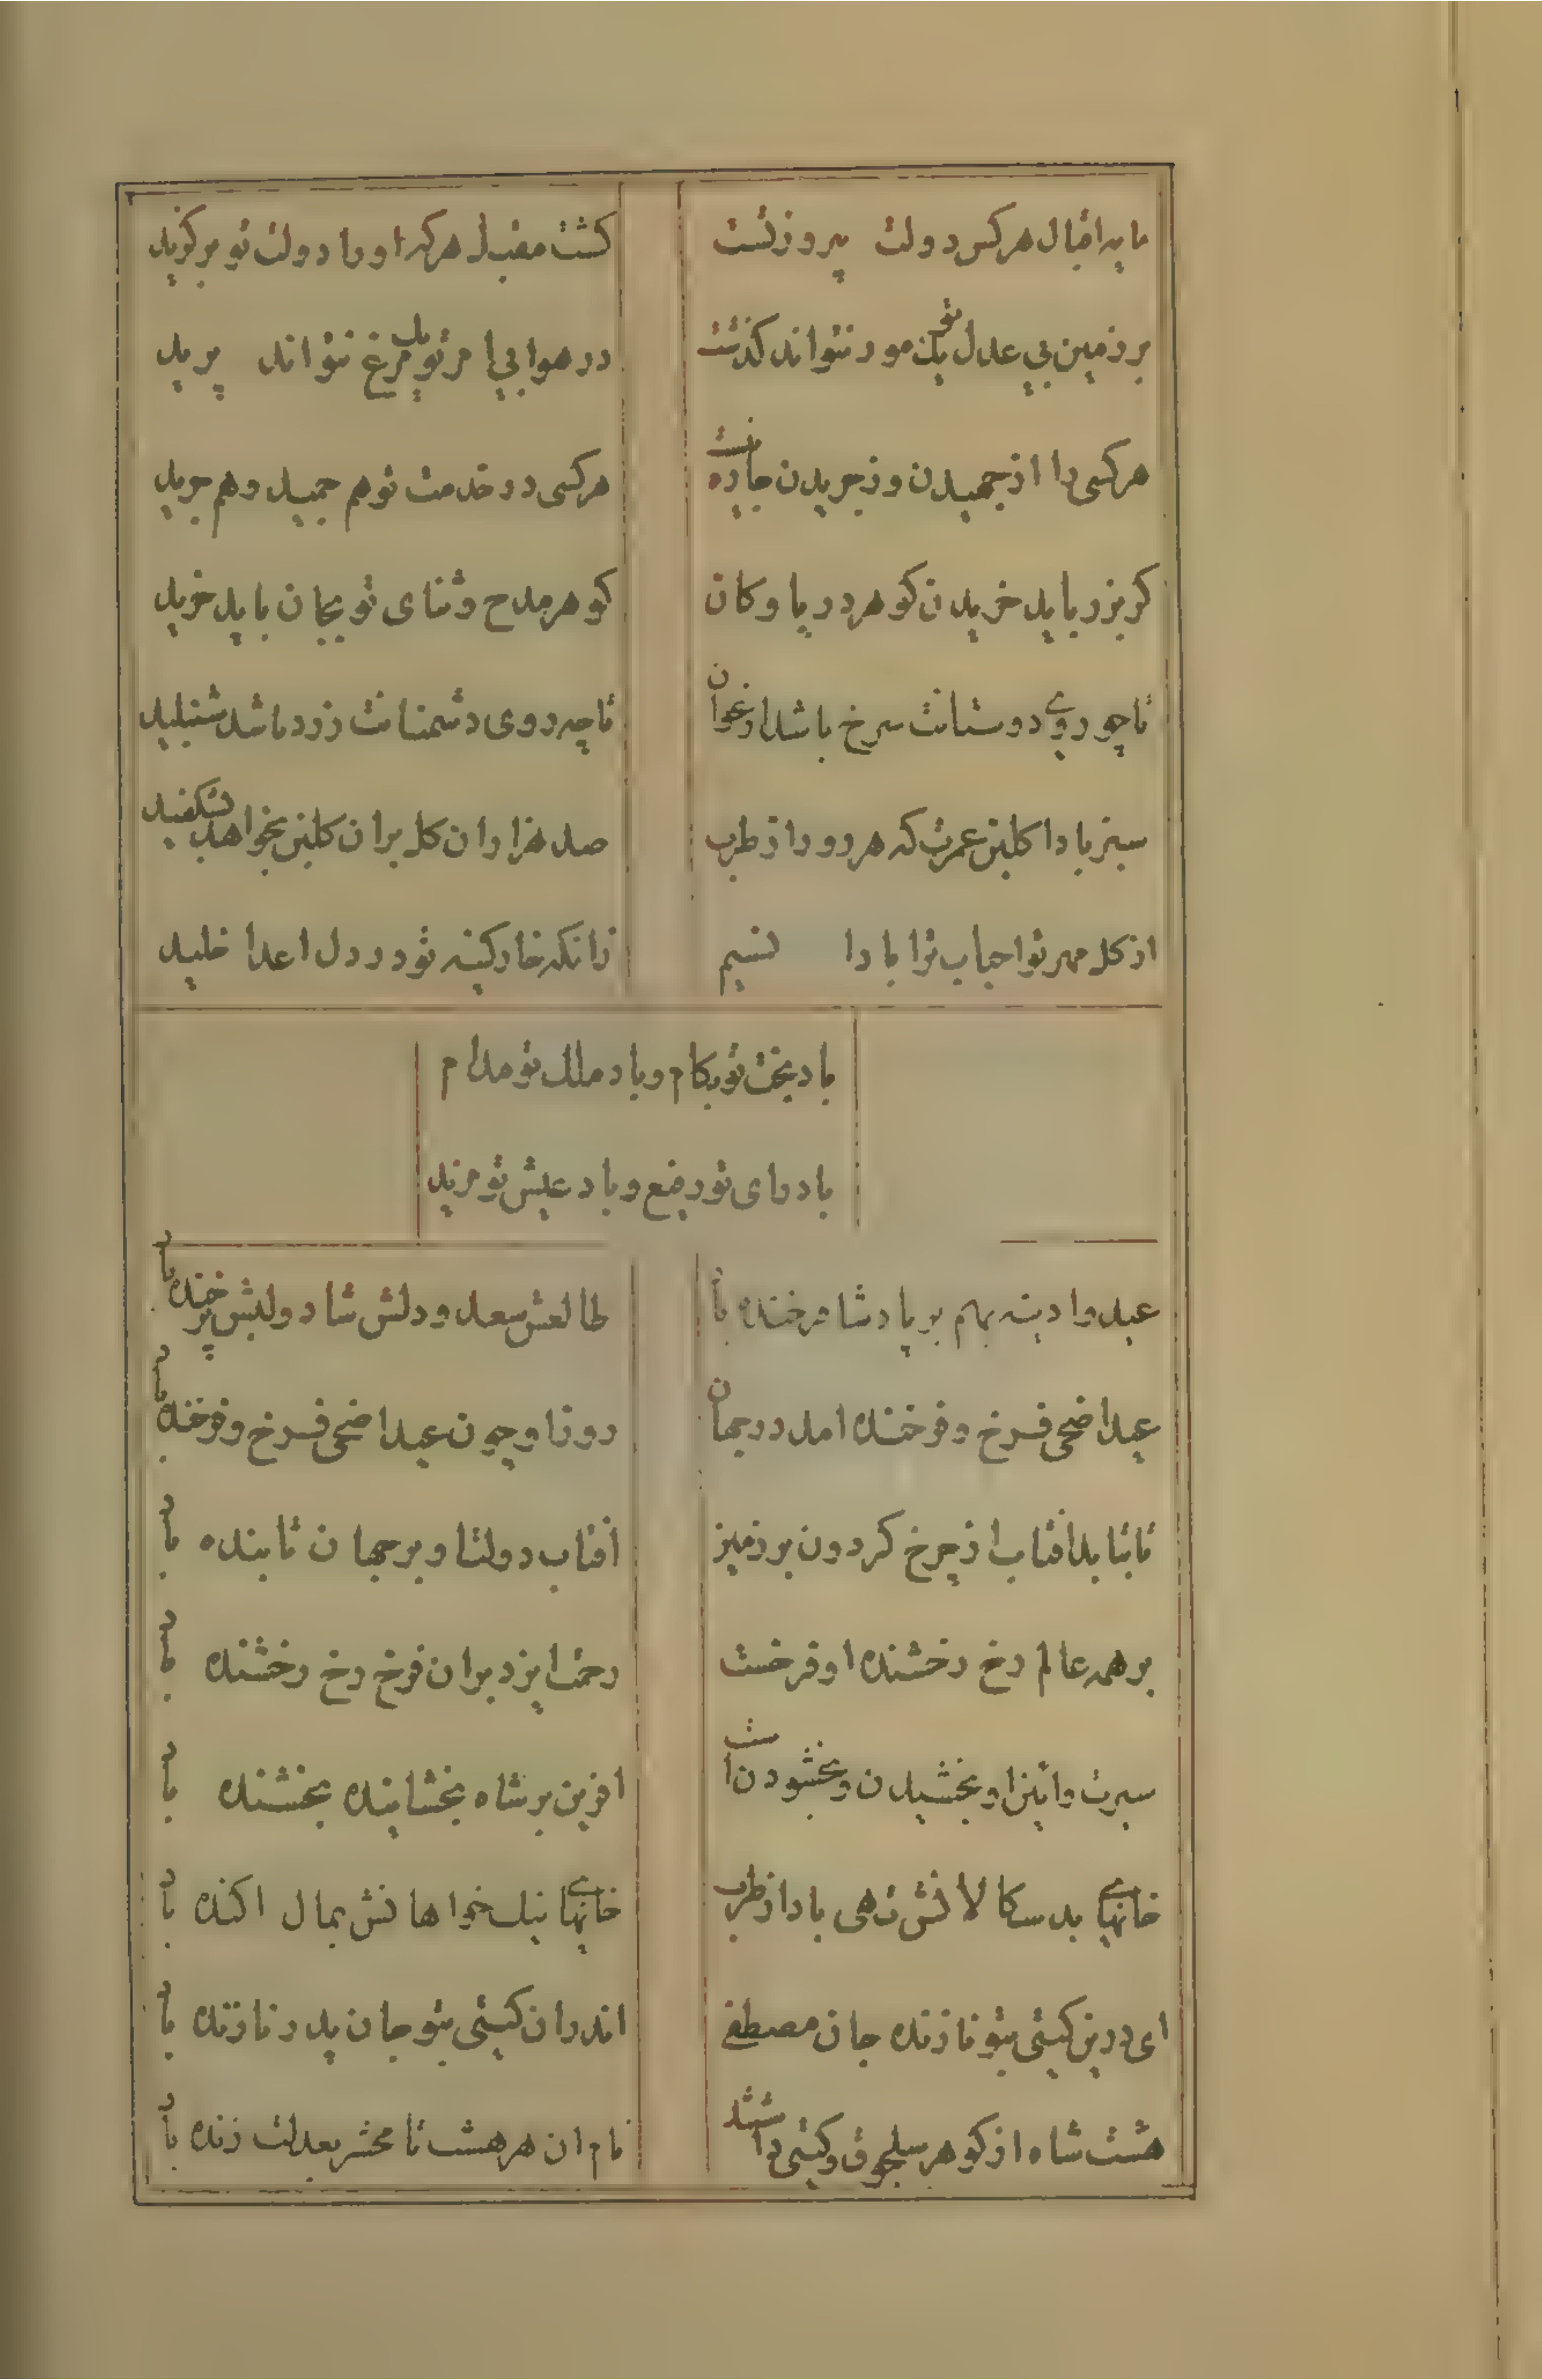 مایه اقبال هرکس دولت پیروز تست
کشت مقبل هرکه او را دولت تو برکزید
بر زمین بی عدل تو یک مور نتواند کذشت
در هوا بی امر تو یک مرغ نتواند پرید
هرکسی را از چمیدن وز چریدن چاره نیست
هرکسی در خدمت توهم چمید و هم چرید
کر بزر باید خریدن کوهر دریا و کان
کوهر مدح و ثنای تو بجان باید خرید
تا چو روی دوستانت سرخ باشد ارغوان
تا چه روی دشمنانت زرد باشد شنبلید
سبز بادا کلبن عمرت که هر روز از طرب
صد هزاران کل بران کلبن بخواهد شکفید
از کل مهر تو احباب ترا بادا نسیم
زانکه خار کینه تو در دل اعدا خلید
باد بخت تو بکام و باد ملک تو مدام
باد رای تو رفیع و باد عیش تو مزید
عید و ادینه بهم بر پادشا فرخنده باد
طالعش سعد و دلش شاد و لبش پرخنده باد
عید اضحی فرخ و فرخنده امد در جهان
روز او چون عید اضحی فرخ و فرخنده باد
تا بتابد افتاب از چرخ کردون بر زمین
افتاب دولت او بر جهان تابنده باد
بر همه عالم رخ رخشنده او فرخست
رحمت ایزد بران فرخ رخ رخشنده باد
سیرت و ائین او بخشیدن و بخشودن است
افرین بر شاه بخشاینده بخشنده باد
خانهای بدسکالانش تهی باد از طرب
خانهای نیک خواهانش بمال اکنده باد
ای درین کیتی بتو نازنده جان مصطفی
اندران کیتی بتو جان پدر نازنده باد
هشت شاه از کوهر سلجوق کیتی داشتند
نام ان هر هشت تا محشر بعدلت زنده باد